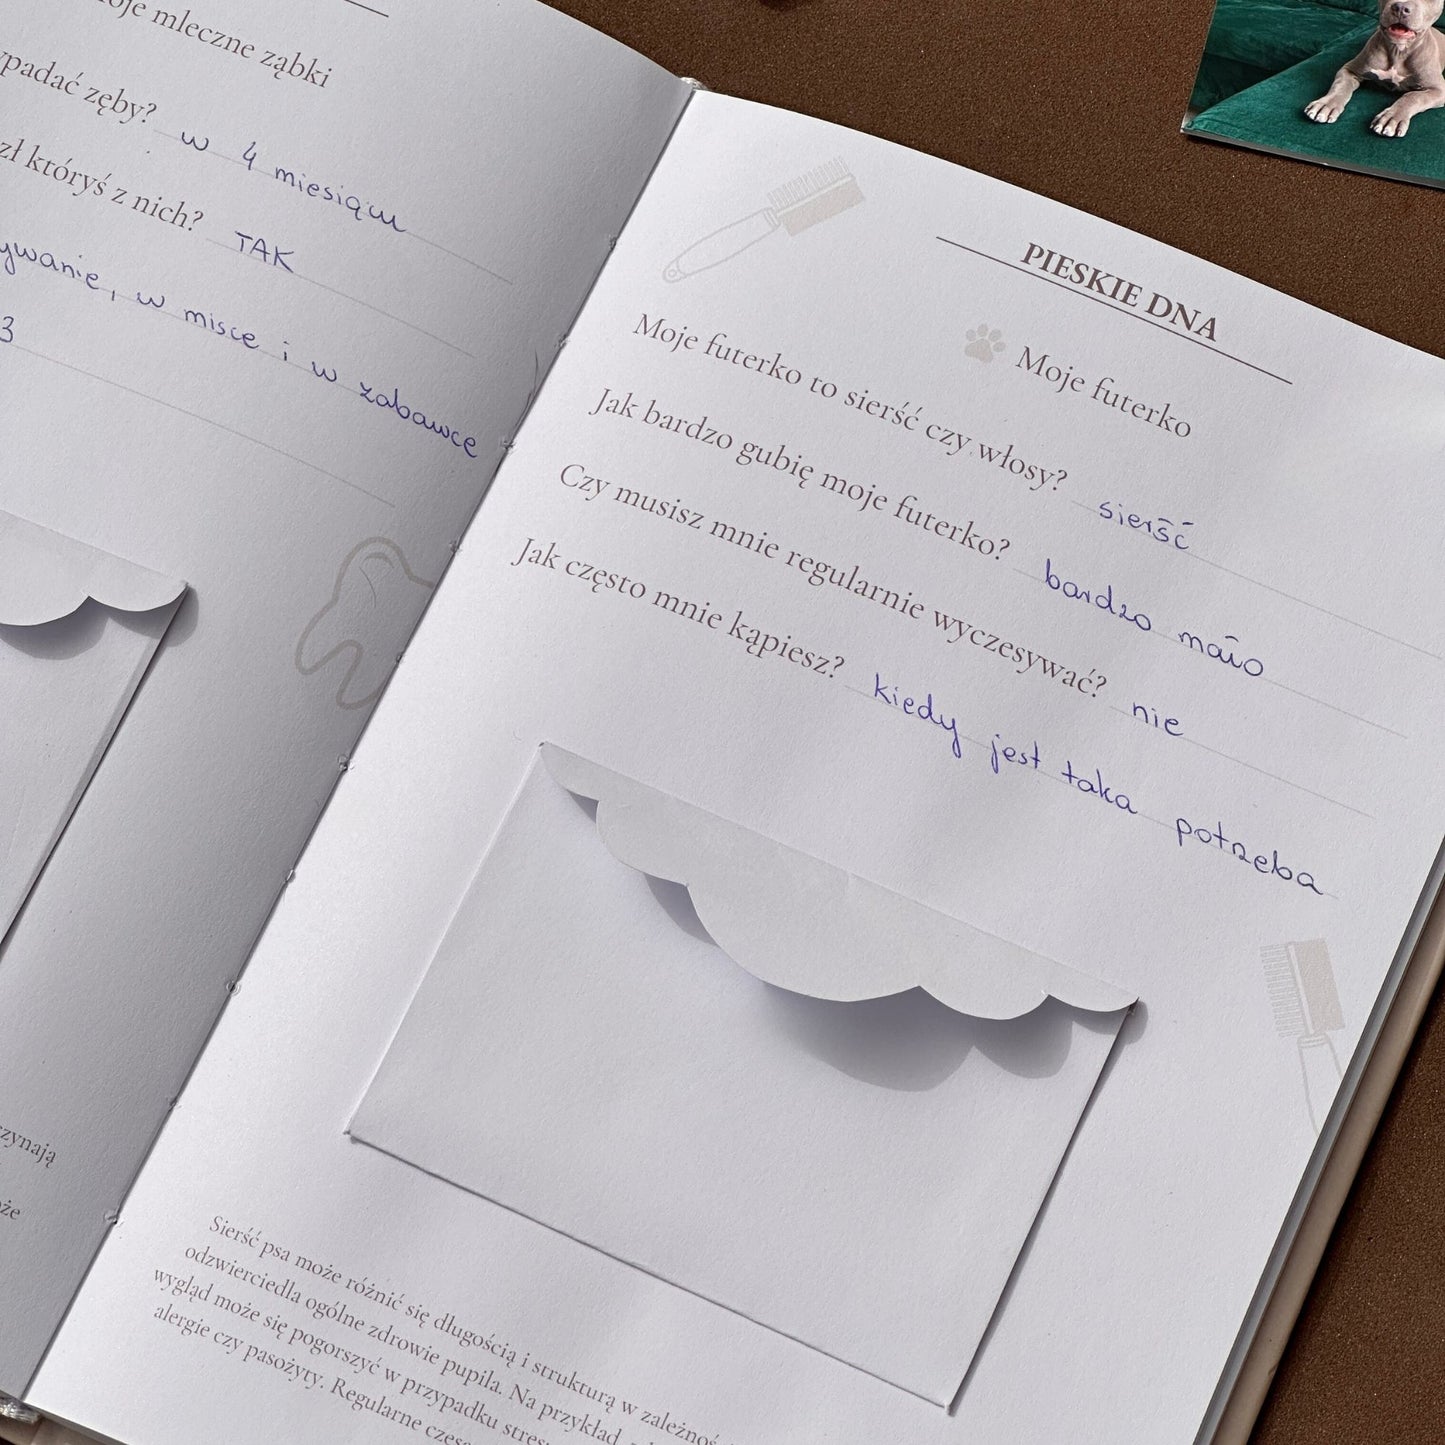 mleczne ząbki
zęby? w 4 miesiącu
któryś z nich? TAK
w misce i w zabawce
3
PIESKIE DNA
Moje futerko
Moje futerko to sierść czy włosy? sierść
Jak bardzo gubię moje futerko? bardzo mało
Czy musisz mnie regularnie wyczesywać? nie
Jak często mnie kąpiesz? kiedy jest taka potrzeba
Sierść psa może różnić się długością i strukturą w
odzwierciedla ogólne zdrowie pupila. Na przykład
wygląd może się pogorszyć w przypadku
alergie czy pasożyty. Regularne